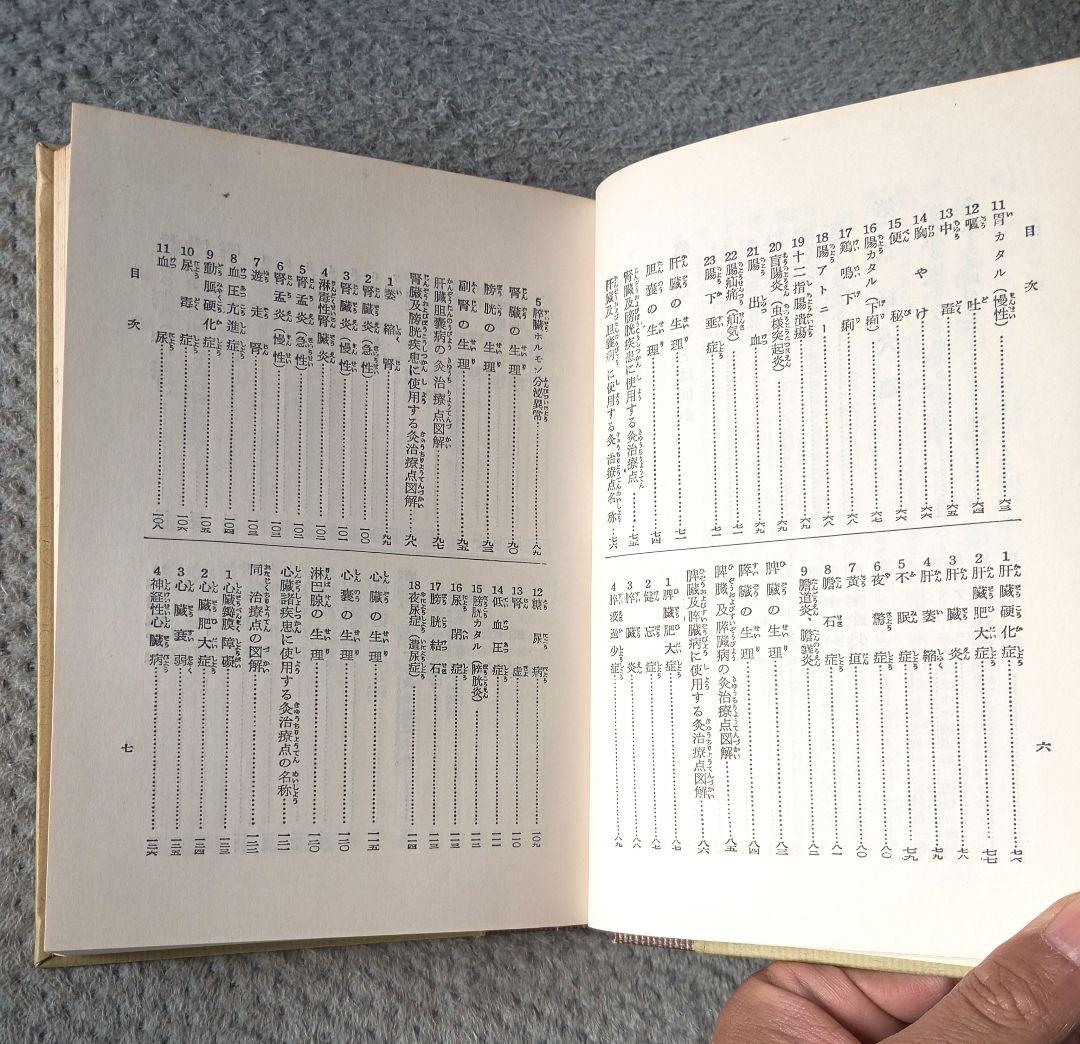 目次
11 胃カタル（慢性）……六三
12 嘔吐……六四
13 中毒……六五
14 胸やけ……六六
15 便秘……六六
16 腸カタル（下痢）……六七
17 鶏鳴下痢……六八
18 腸アトニー……六八
19 十二指腸潰瘍……六九
20 盲腸炎（虫様突起炎）……六九
21 腸出血……六九
22 腸疝痛（疝気）……七一
23 腸下垂症……七一
肝臓の生理……七一
胆嚢の生理……七四
腎臓及膀胱疾患に使用する灸治療点……七五
肝臓及胆嚢病に使用する灸治療点名称…七六
1 肝臓硬化症……七六
2 肝臓肥大症……七七
3 肝臓炎……七八
4 肝萎縮……七九
5 不眠症……七九
6 夜驚症……八〇
7 黄疸……八〇
8 膽石症……八一
9 膽道炎、膽嚢炎……八二
脾臓の生理……八三
膵臓の生理……八四
脾臓及膵臓病の灸治療点図解……八五
脾臓及膵臓病に使用する灸治療点図解……八六
1 脾臓肥大症……八七
2 健忘症……八七
3 膵臓炎……八八
4 膵液過少症……八九
六
5 膵臓ホルモン分泌異常……八九
腎臓の生理……九〇
膀胱の生理……九三
副腎の生理……九五
肝臓胆嚢病の灸治療点図解……九七
腎臓及膀胱疾患に使用する灸治療点図解……九八
1 萎縮腎……九九
2 腎臓炎（急性）……一〇〇
3 腎臓炎（慢性）……一〇一
4 淋毒性腎臓炎……一〇二
5 腎盂炎（急性）……一〇二
6 腎盂炎（慢性）……一〇三
7 遊走腎……一〇三
8 血圧亢進症……一〇四
9 動脈硬化症……一〇五
10 尿毒症……一〇六
11 血尿……一〇八
12 糖尿病……一〇九
13 腎虚……一一〇
14 低血圧症……一一一
15 膀胱カタル（膀胱炎）……一一二
16 尿閉症……一一三
17 膀胱結石……一一三
18 夜尿症（遺尿症）……一一四
心臓の生理……一一五
心嚢の生理……一二〇
淋巴腺の生理……一二〇
心臓諸疾患に使用する灸治療点の名称……一二一
同、治療点の図解……一二二
1 心臓瓣膜障礙……一二三
2 心臓肥大症……一二四
3 心臓衰弱……一二五
4 神経性心臓病……一二六
目次
七